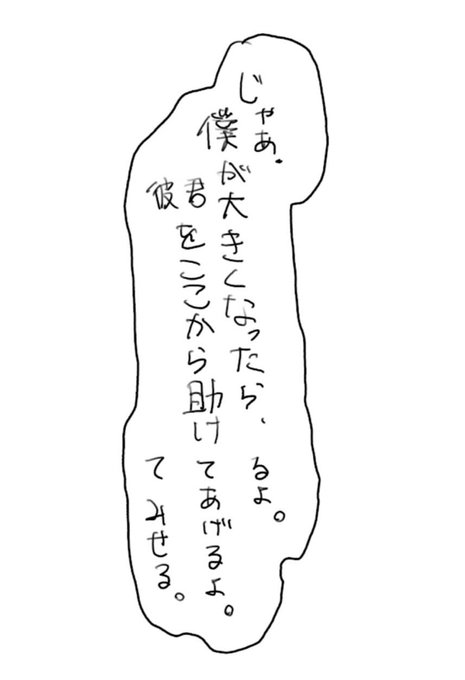 じゃあ.
僕が大きくなったら、
るよ。
君をここから助けてあげるよ。
彼
てみせる。